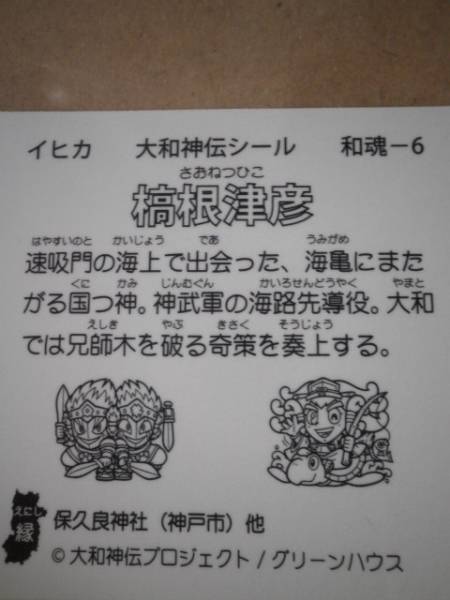 イヒカ 大和神伝シール 和魂－6
さおねつひこ
槁根津彦
はやすいのと かいじょう であ うみがめ
速吸門の海上で出会った、海亀にまた
くに かみ じんむぐん かいろせんどうやく やまと
がる国つ神。神武軍の海路先導役。大和
えしき やぶ きさく そうじょう
では兄師木を破る奇策を奏上する。
えにし
縁 保久良神社（神戸市）他
© 大和神伝プロジェクト / グリーンハウス